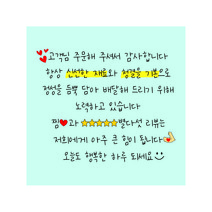 고객님 주문해 주셔서 감사합니다
항상 신선한 재료와 청결을 기본으로
정성을 듬뿍 담아 배달해 드리기 위해
노력하고 있습니다
찜❤과 ⭐⭐⭐⭐⭐별다섯 리뷰는
저희에게 아주 큰 힘이 됩니다👍
오늘도 행복한 하루 되세요